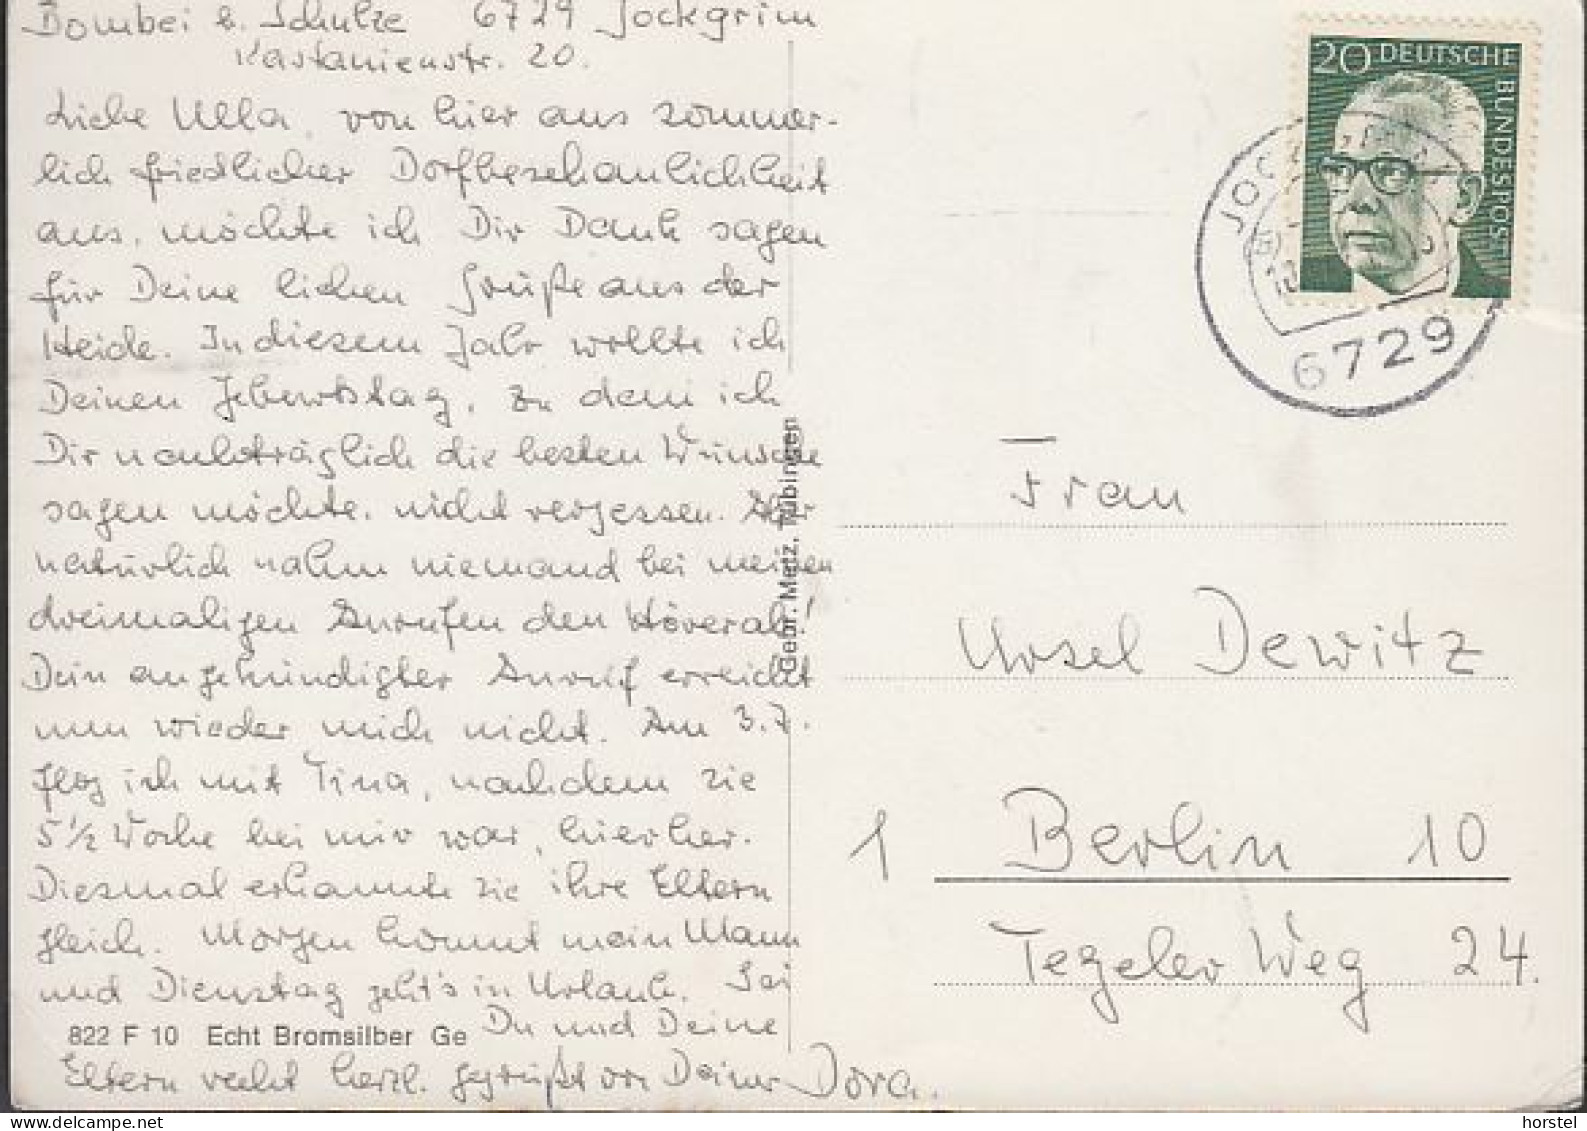 Bombei b. Schulze 6729 Jockgrim
Kastanienstr. 20.
Liebe Ulla, von hier aus sommer-
lich friedlicher Dorfbeschaulichkeit
aus, möchte ich Dir Dank sagen
für Deine lieben Grüße aus der
Heide. In diesem Jahr wollte ich
Deinen Geburtstag, zu dem ich
Dir nachträglich die besten Wünsche
sagen möchte, nicht vergessen. Aber
natürlich nahm niemand bei meinen
dreimaligen Anrufen den Hörer ab!
Dein angekündigter Anruf erreicht
nun wieder mich nicht. Am 3.7.
flog ich mit Tina, nachdem sie
5 1/2 Woche bei mir war, hierher.
Diesmal erkannte sie ihre Eltern
gleich. Morgen kommt mein Mann
und Dienstag geht's in Urlaub. Sei
Du und Deine
Eltern recht herzl. gegrüßt von Deiner Dora.
822 F 10 Echt Bromsilber Ge
Gebr. Metz, Tübingen
20 DEUTSCHE BUNDESPOST
6729
Frau
Ursel Dewitz
1 Berlin 10
Tegeler Weg 24.
horstel